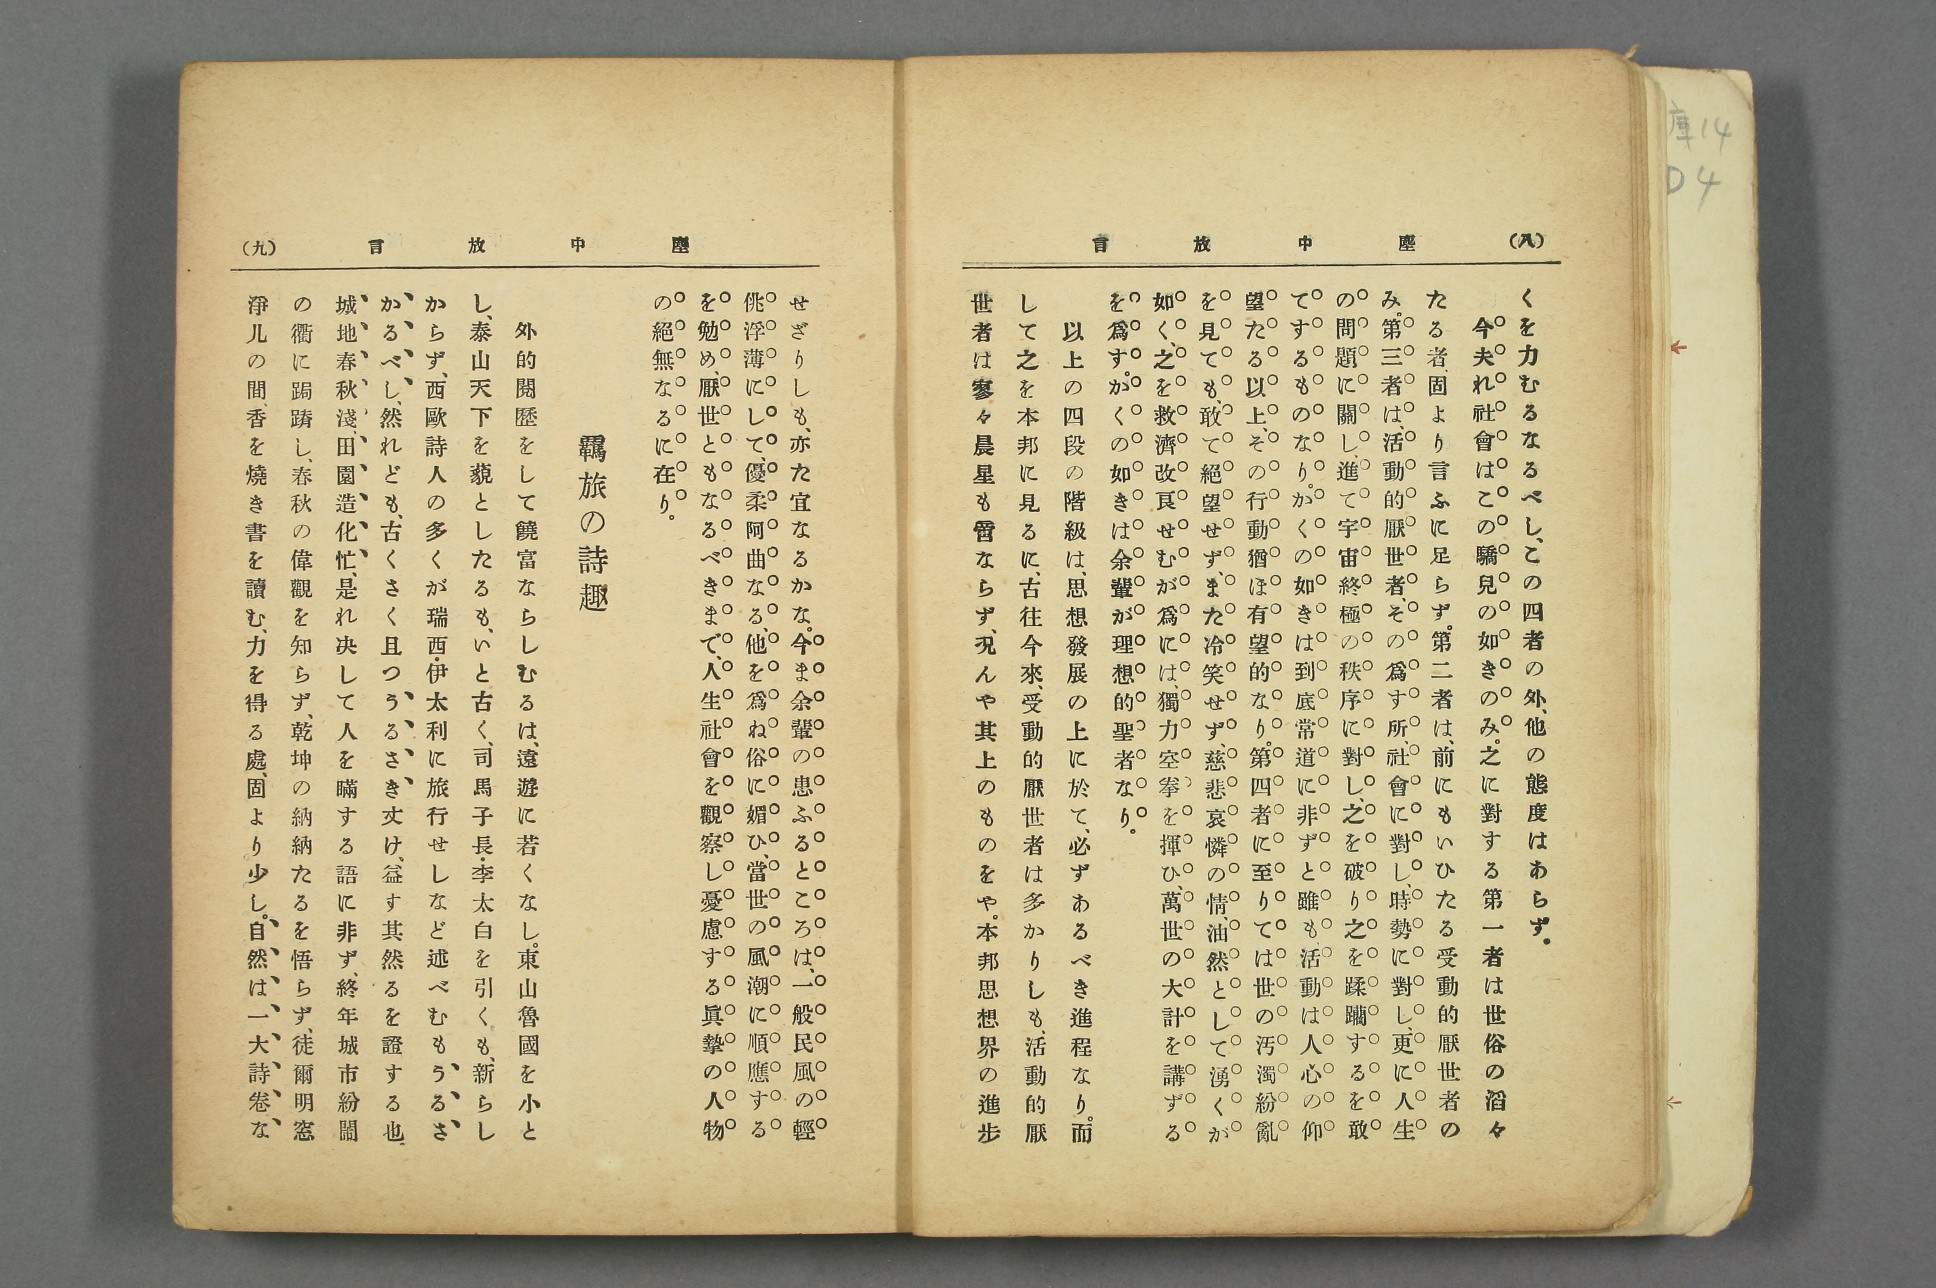 庫14
D4
(八)
塵中放言
くを力むるなるべし、この四者の外、他の態度はあらず。
今夫れ社會はこの驕兒の如きのみ。之に對する第一者は世俗の滔々
たる者、固より言ふに足らず。第二者は、前にもいひたる受動的厭世者の
み。第三者は、活動的厭世者、その爲す所、社會に對し、時勢に對し、更に人生
の問題に關し、進て宇宙終極の秩序に對し、之を破り之を蹂躪するを敢
てするものなり。かくの如きは到底常道に非ずと雖も、活動は人心の仰
望たる以上、その行動猶ほ有望的なり。第四者に至りては世の汚濁紛亂
を見ても、敢て絕望せず、また冷笑せず、慈悲哀憐の情、油然として湧くが
如く、之を救濟改良せむが爲には獨力空拳を揮ひ、萬世の大計を講ずる
を爲す。かくの如きは余輩が理想的聖者なり。
以上の四段の階級は、思想發展の上に於て、必ずあるべき進程なり。而
して之を本邦に見るに、古往今來、受動的厭世者は多かりしも、活動的厭
世者は寥々晨星も啻ならず、况んや其上のものをや。本邦思想界の進步
塵中放言
(九)
せざりしも、亦た宜なるかな。今ま余輩の患ふるところは、一般民風の輕
佻浮薄にして、優柔阿曲なる、他を爲ね俗に媚ひ、當世の風潮に順應する
を勉め、厭世ともなるべきまで、人生社會を觀察し憂慮する眞摯の人物
の絕無なるに在り。
羈旅の詩趣
外的閱歷をして饒富ならしむるは、遠遊に若くなし。東山魯國を小と
し、泰山天下を藐としたるも、いと古く、司馬子長・李太白を引くも、新らし
からず、西歐詩人の多くが瑞西・伊太利に旅行せしなど述べむもうるさ
かるべし、然れども、古くさく且つうるさき丈け、益す其然るを證する也、
城地春秋淺、田園造化忙、是れ决して人を瞞する語に非ず、終年城市紛鬧
の衢に跼蹐し、春秋の偉觀を知らず、乾坤の納納たるを悟らず、徒爾明窓
淨几の間、香を燒き書を讀む、力を得る處、固より少し。自然は、一大詩卷な